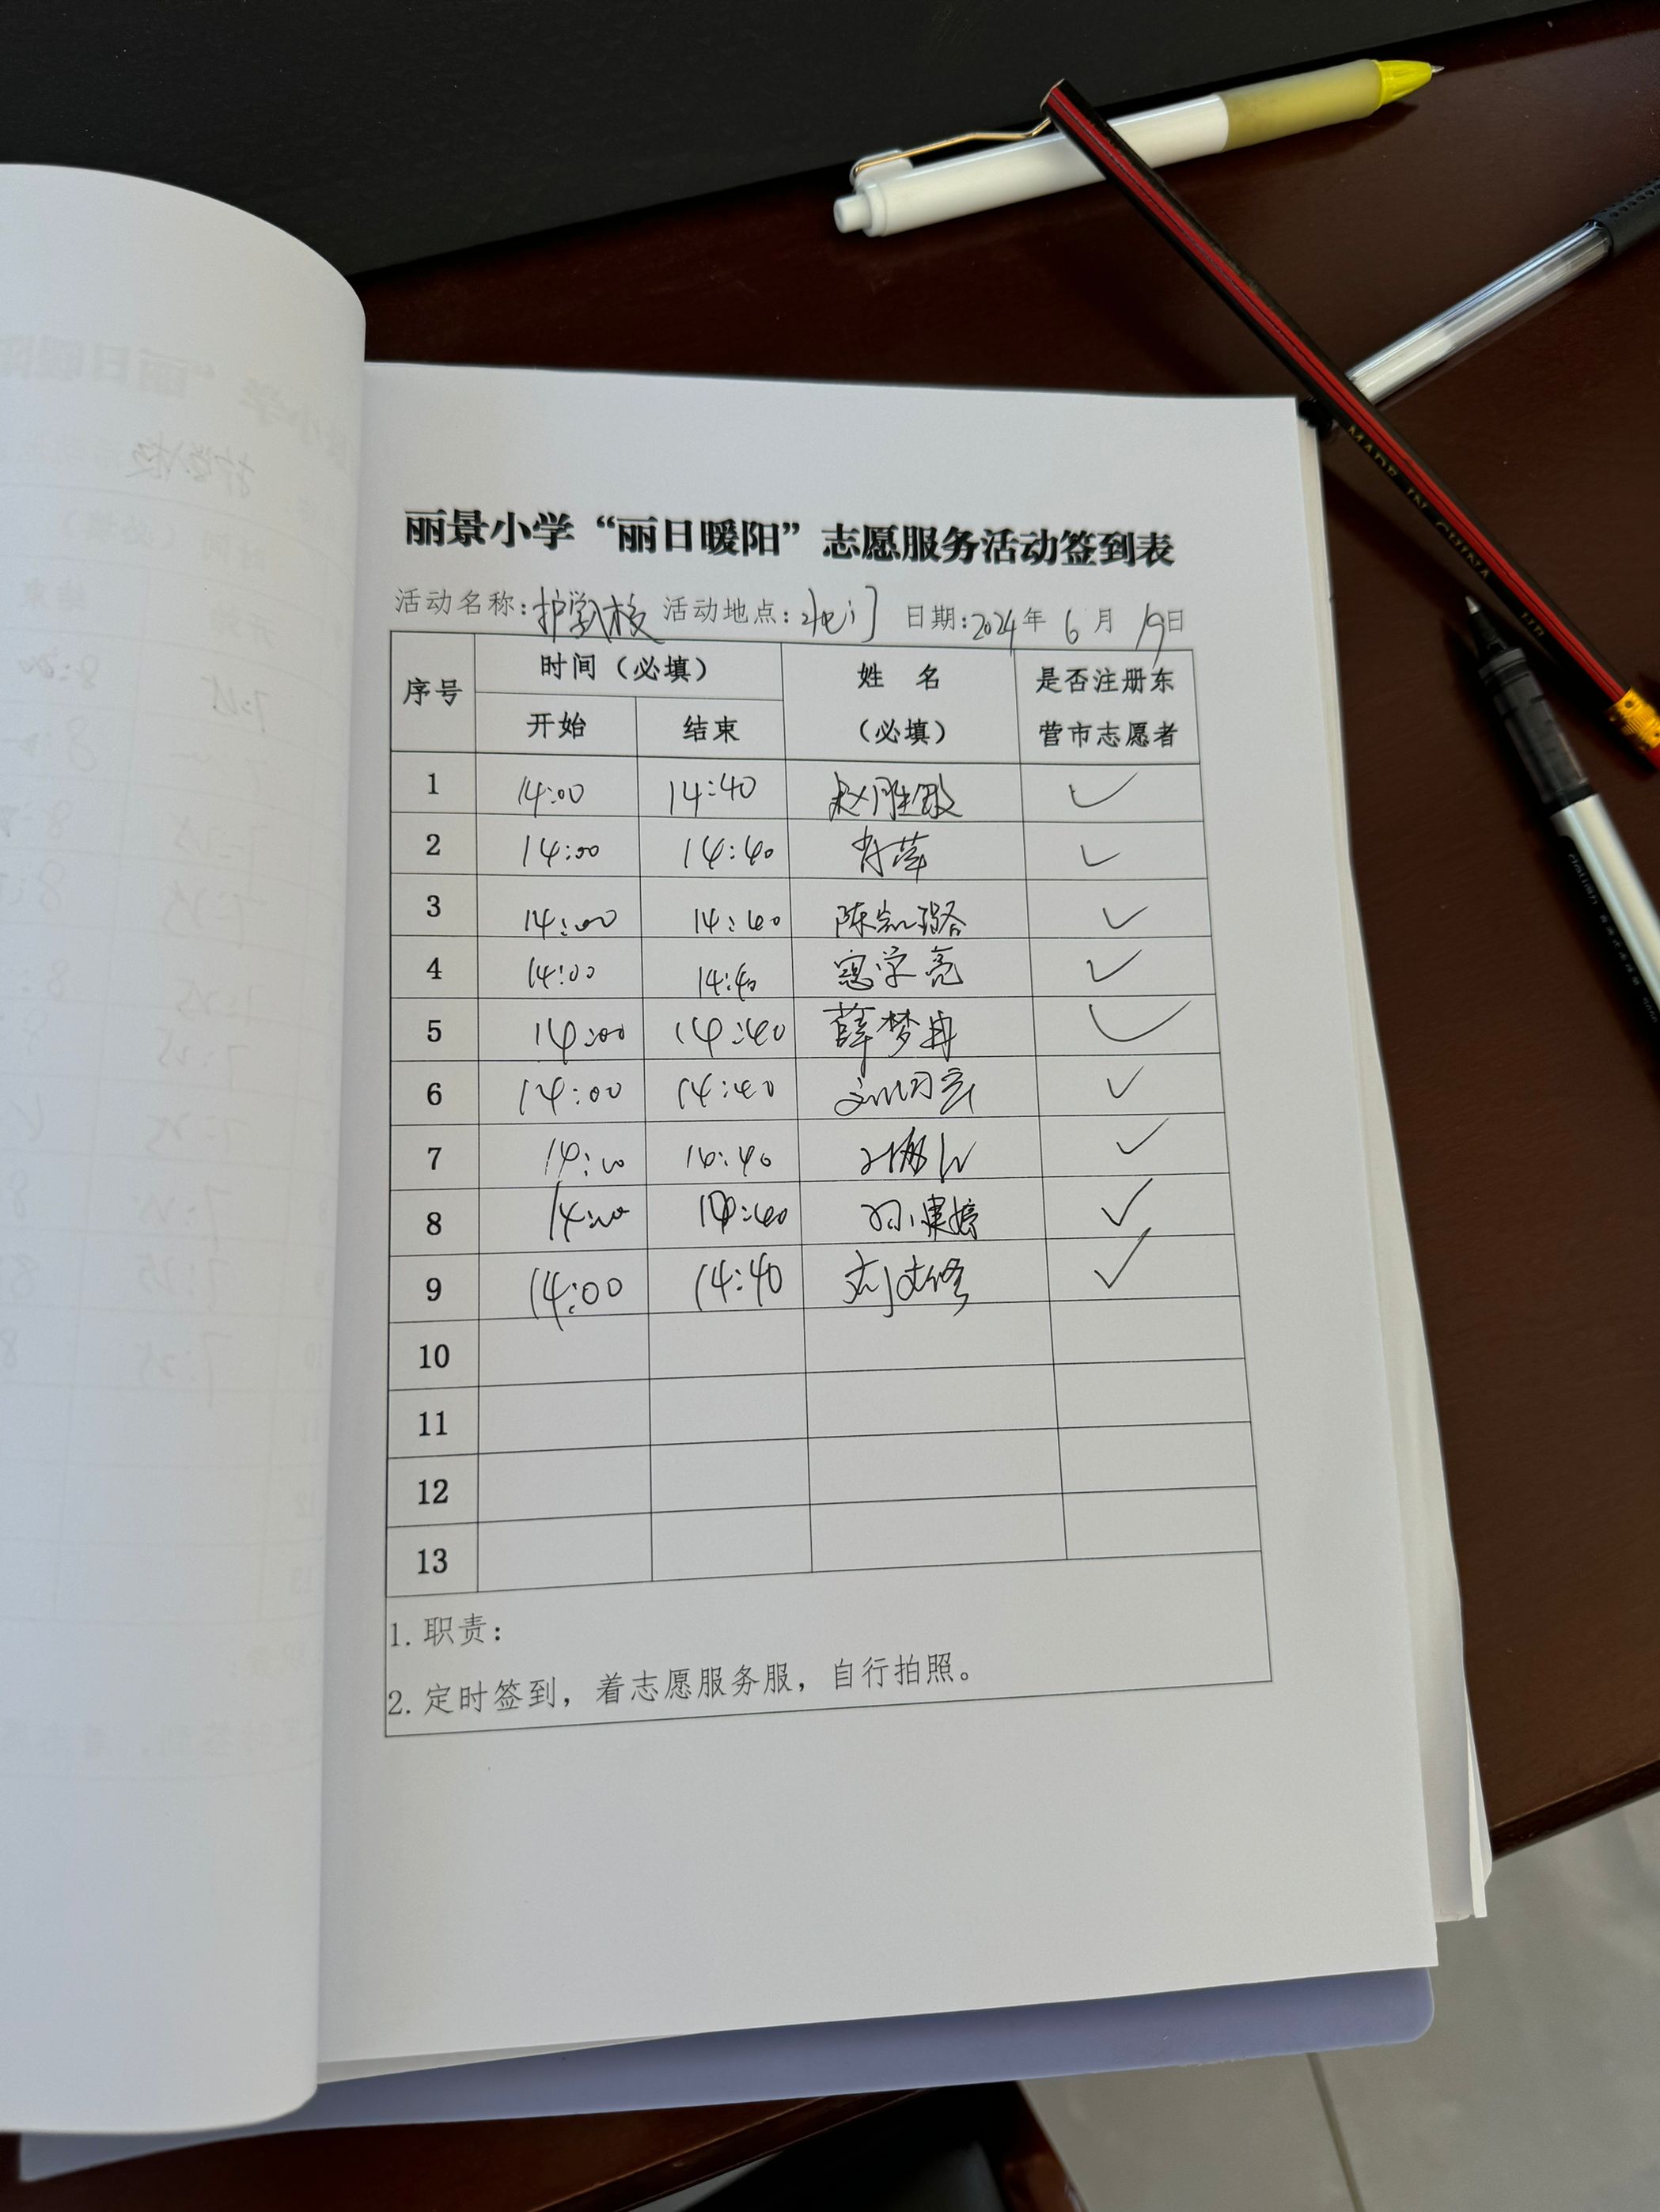 丽景小学“丽日暖阳”志愿服务活动签到表
活动名称:护学入校 活动地点:北门 日期:2024年 6 月 19日
序号 时间（必填） 姓 名 是否注册东
开始 结束 （必填） 营市志愿者
1 14:00 14:40 赵胜敏 ✓
2 14:00 14:40 肖萍 ✓
3 14:00 14:40 陈凯璐 ✓
4 14:00 14:40 寇学亮 ✓
5 14:00 14:40 薛梦冉 ✓
6 14:00 14:40 ✓
7 14:00 14:40 ✓
8 14:00 14:40 ✓
9 14:00 14:40 ✓
10
11
12
13
1.职责：
2.定时签到，着志愿服务服，自行拍照。
MADE IN CHINA